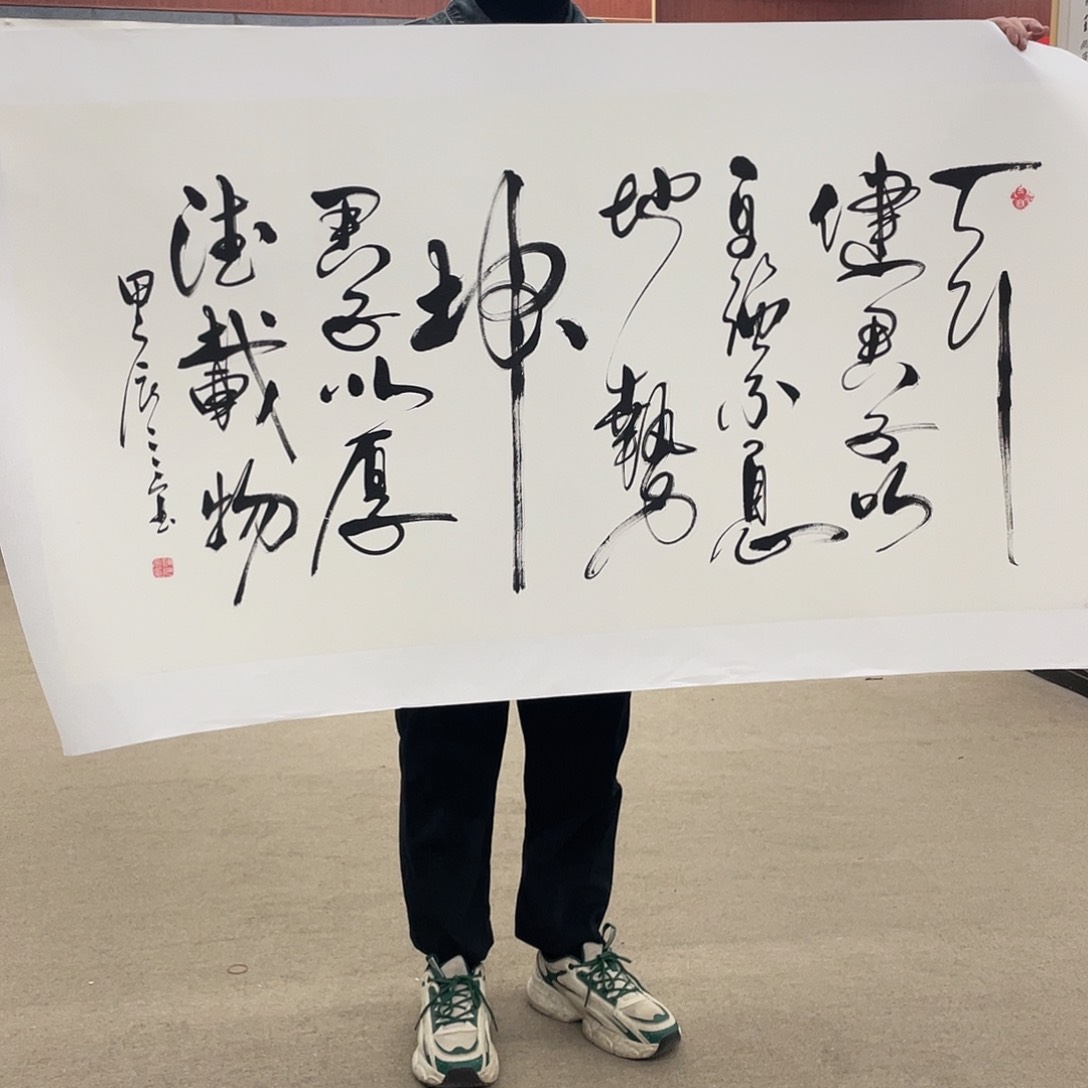 天行
健君子以
自强不息
地势
坤
君子以厚
德載物
甲辰